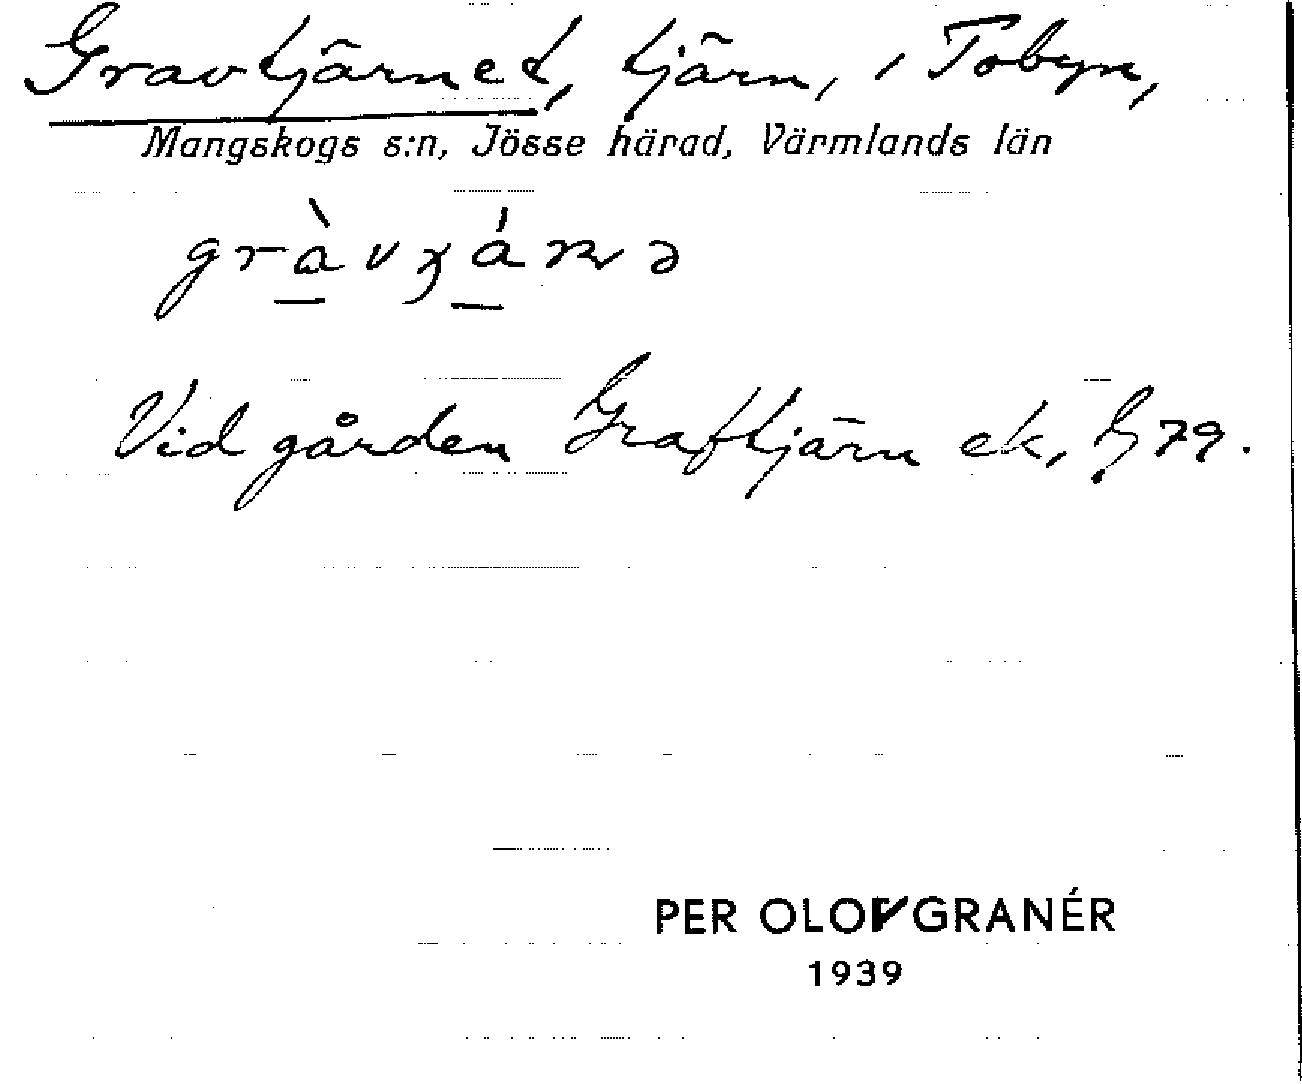 Gravtjärnet, tjärn, i Tobyn,
Mangskogs s:n, Jösse härad, Värmlands län
Vid gården Graftjärn ek, G 79.
PER OLOV GRANÉR
1939